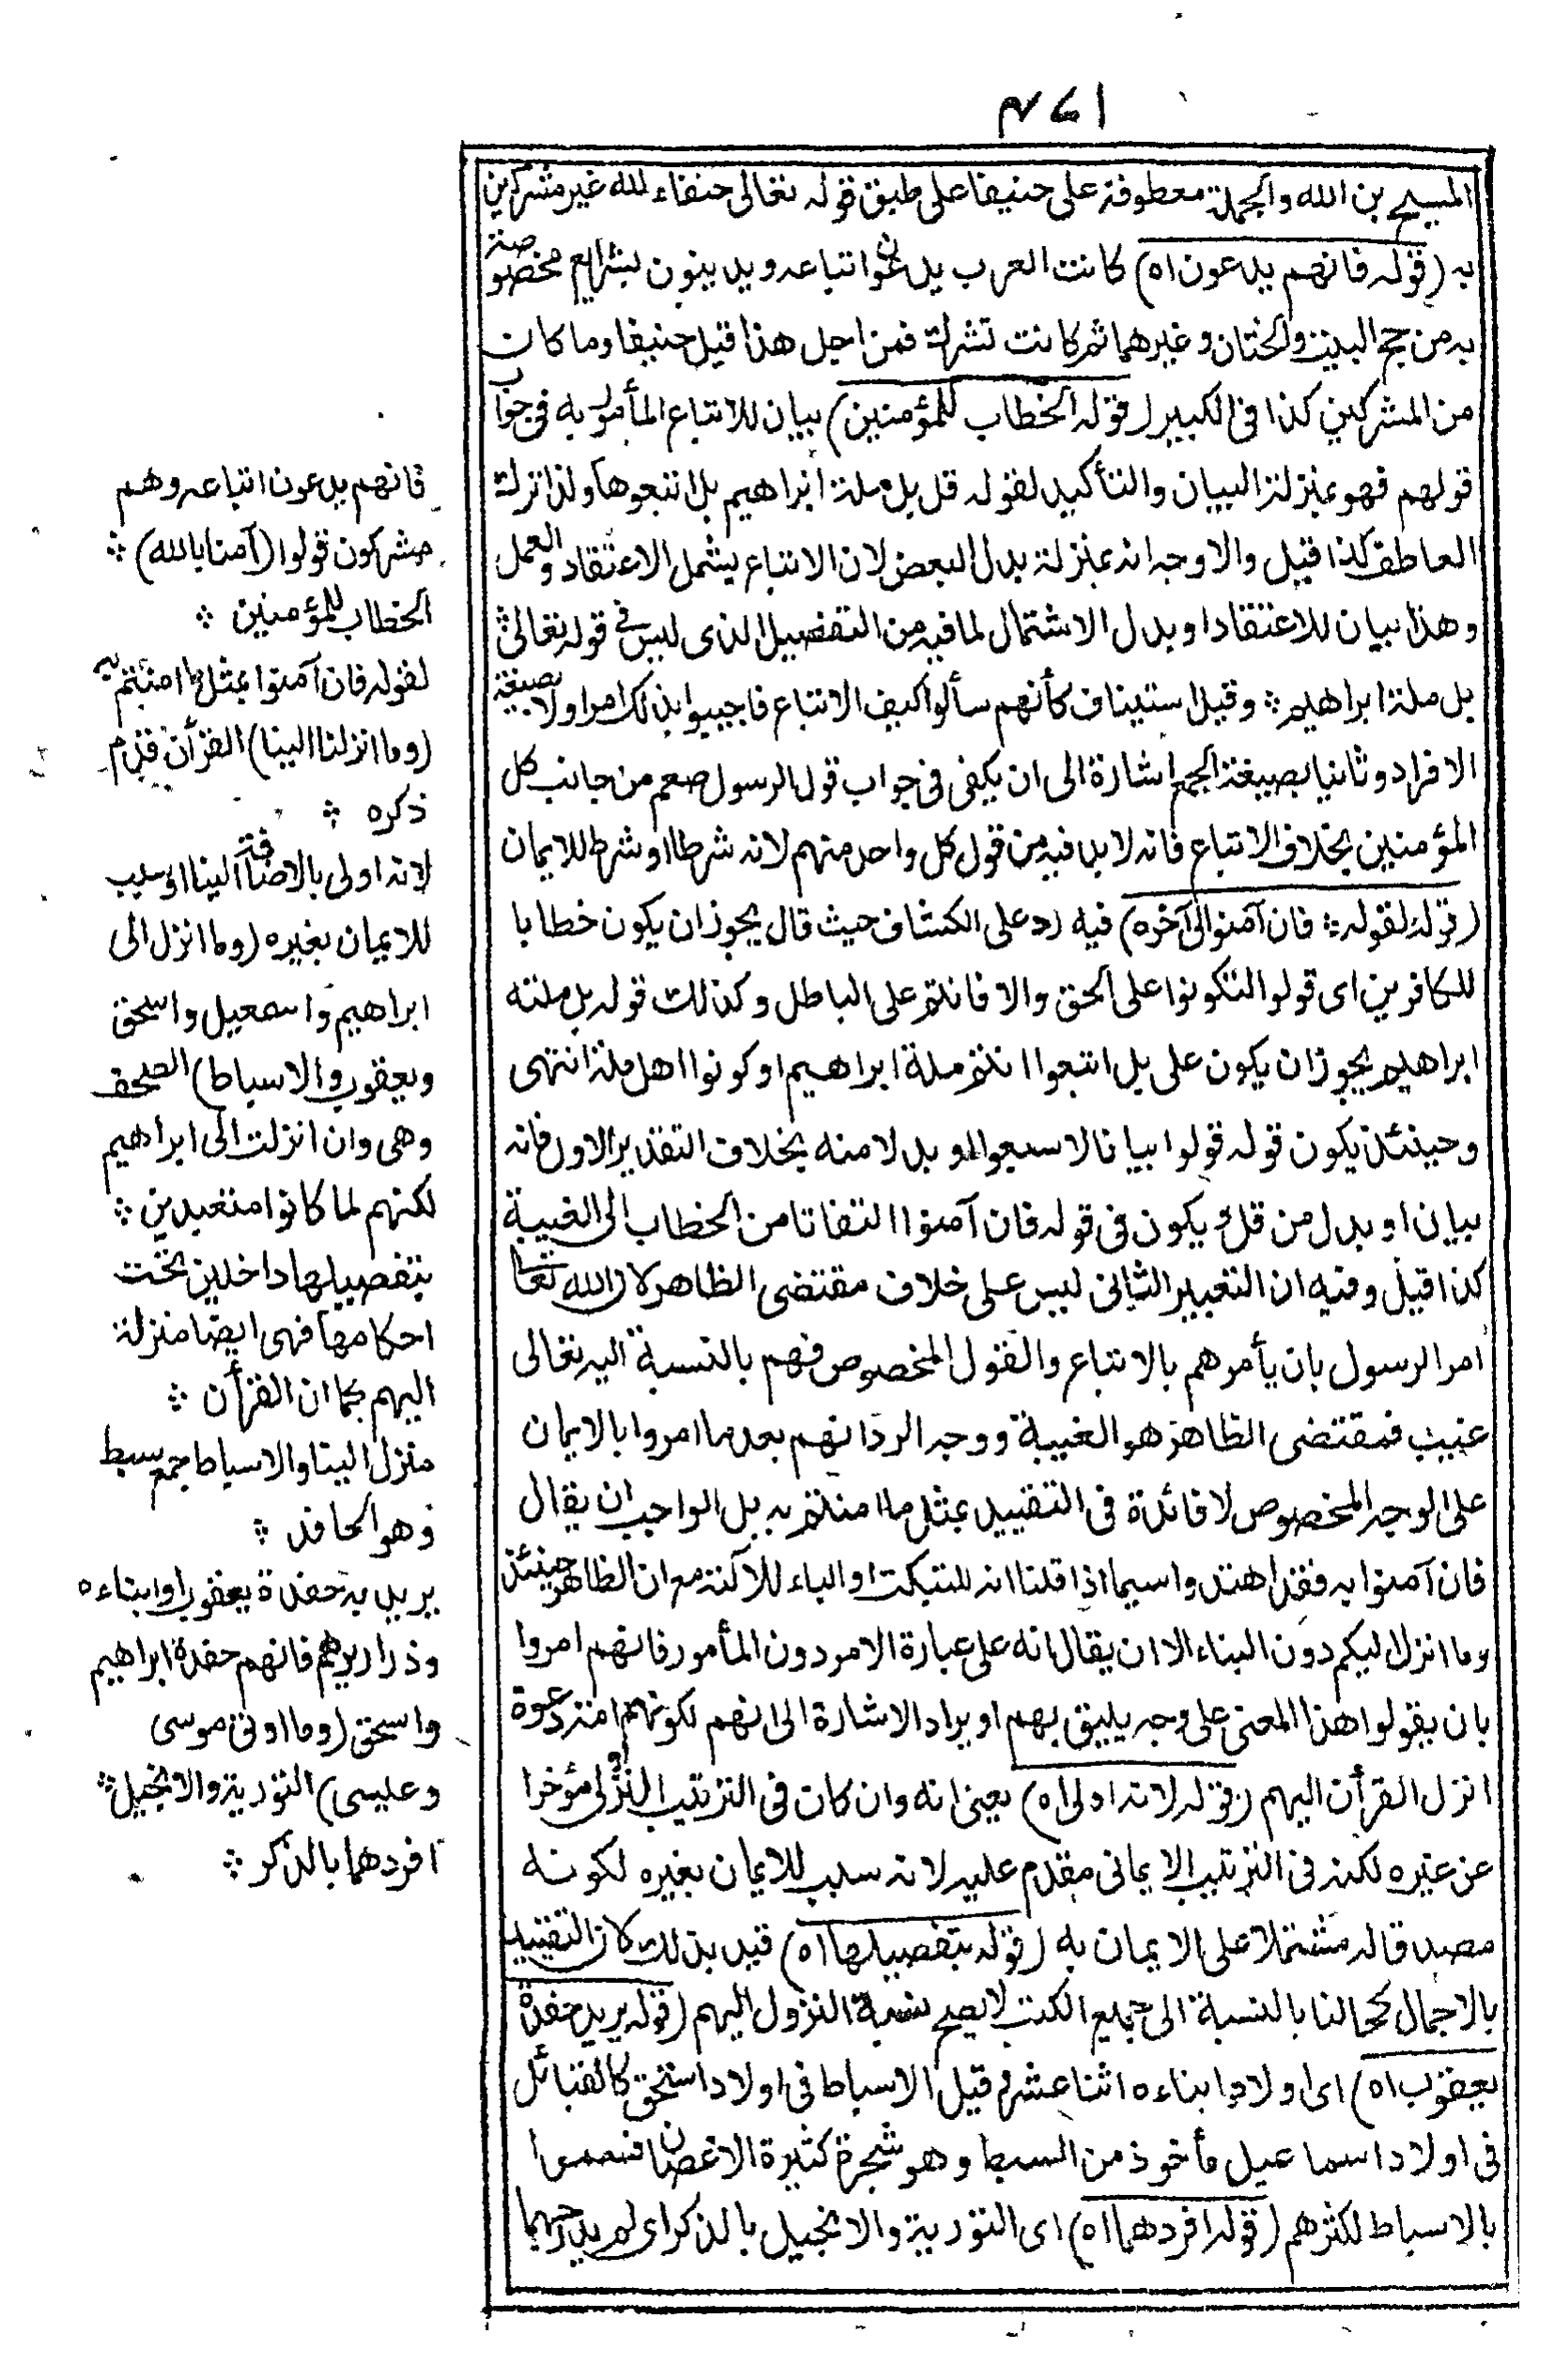 ٤٦١
المسيح بن الله والجملة معطوفة على حنيفا على طبق قوله تعالى حنفاء لله غير مشركين
به (قوله فانهم يدعون اه) كانت العرب يدعون اتباعه ويدينون بشرايع مخصوصة
به من حج البيت والختان وغيرهما ثم كانت تشرك فمن اجل هذا قيل حنيفا وما كان
من المشركين كذا فى الكبير (قوله الخطاب للمؤمنين) بيان للاتباع المأمور به فى جواب
قولهم فهو بمنزلة البيان والتأكيد لقوله قل بل ملة ابراهيم بل اتبعوها ولذا ترك
العاطف كذا قيل والاوجه انه بمنزلة بدل البعض لان الاتباع يشمل الاعتقاد والعمل
وهذا بيان للاعتقاد او بدل الاشتمال لما فيه من التفصيل الذى ليس فى قوله تعالى ؞
بل ملة ابراهيم ؞ وقيل استيناف كأنهم سألوا كيف الاتباع فاجيبوا بذلك امر اولا بصيغة
الافراد وثانيا بصيغة الجمع اشارة الى ان يكفى فى جواب قول الرسول صعم من جانب كل
المؤمنين بخلاف الاتباع فانه لابد فيه من قول كل واحد منهم لانه شرطا او شرط للايمان
(قوله لقوله ؞ فان آمنوا الى آخره) فيه رد على الكشاف حيث قال يجوز ان يكون خطابا
للكافرين اى قولوا لتكونوا على الحق والا فانتم على الباطل وكذلك قوله بل ملته
ابراهيم يجوز ان يكون على بل اتبعوا انتم ملة ابراهيم او كونوا اهل ملة انتهى
وحينئذ يكون قوله قولوا بيانا لاتبعوا او بدلا منه بخلاف التقدير الاول فانه
بيان او بدل من قل ويكون فى قوله فان آمنوا التفاتا من الخطاب الى الغيبة
كذا قيل وفيه ان التعبير الثانى ليس على خلاف مقتضى الظاهر لان الله تعالى
امر الرسول بان يأمرهم بالاتباع والقول المخصوص فهم بالنسبة اليه تعالى
غيب فمقتضى الظاهر هو الغيبة ووجه الرد انهم بعد ما امروا بالايمان
على الوجه المخصوص لا فائدة فى التقييد بمثل ما امنتم به بل الواجب ان يقال
فان آمنوا به فقد اهتدوا سيما اذا قلنا انه للتبكيت او الباء للآلة مع ان الظاهر حينئذ
وما انزل اليكم دون الينا الا ان يقال انه على عبارة الامر دون المأمور فانهم امروا
بان يقولوا هذا المعنى على وجه يليق بهم او يراد الاشارة الى انهم لكونهم امة دعوة
انزل القرأن اليهم (قوله لانه اولى اه) يعنى انه وان كان فى الترتيب النزولى مؤخرا
عن غيره لكنه فى الترتيب الايمانى مقدم عليه لانه سبب للايمان بغيره لكونه
مصدقا له مشتملا على الايمان به (قوله بتفصيلها اه) قيد بذلك لان التقييد
بالاجمال كحالنا بالنسبة الى جميع الكتب لا يصح نسبة النزول اليهم (قوله يريد حفدة
يعقوب اه) اى اولاد ابناءه اثنا عشر وقيل الاسباط فى اولاد اسحق كالقبائل
فى اولاد اسماعيل مأخوذ من السبط وهو شجرة كثيرة الاغصان فسموا
بالاسباط لكثرهم (قوله افردهما اه) اى التورية والانجيل بالذكر اى لم يدرجهما
فانهم يدعون اتباعه وهم
مشركون قولوا (آمنا بالله) ؞
الخطاب للمؤمنين ؞
لقوله فان آمنوا بمثل ما امنتم به
(وما انزلنا الينا) القرأن قدم
ذكره ؞
لانه اولى بالاضافة الينا او سبب
للايمان بغيره (وما انزل الى
ابراهيم واسمعيل واسحق
ويعقوب والاسباط) الصحف
وهى وان انزلت الى ابراهيم
لكنهم لما كانوا متعبدين ؞
بتفصيلها داخلين تحت
احكامها فهى ايضا منزلة
اليهم كما ان القرأن ؞
منزل الينا والاسباط جمع سبط
وهو الحافد ؞
يريد به حفدة يعقوب او ابناءه
وذراريهم فانهم حفدة ابراهيم
واسحق (وما اوتى موسى
وعيسى) التورية والانجيل ؞
افردهما بالذكر ؞